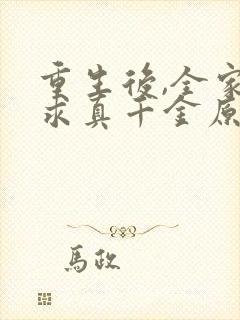 重生後,全家
求真千金原
馬政